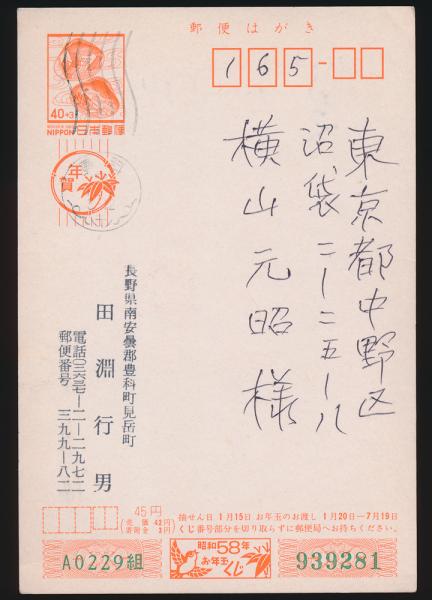 郵便はがき
165-
東京都中野区
沼袋二ー二五ー八
横山元昭様
40+3
NIPPON 日本郵便
年賀
長野県南安曇郡豊科町見岳町
田淵行男
電話〇二六三七ー二ー二九七二
郵便番号 三九九ー八二
45円
(売価 42円 寄附金 3円)
抽せん日 1月15日 お年玉のお渡し 1月20日ー7月19日
くじ番号部分を切り取らずに郵便局へお持ちください。
A0229組
昭和58年
お年玉くじ
939281